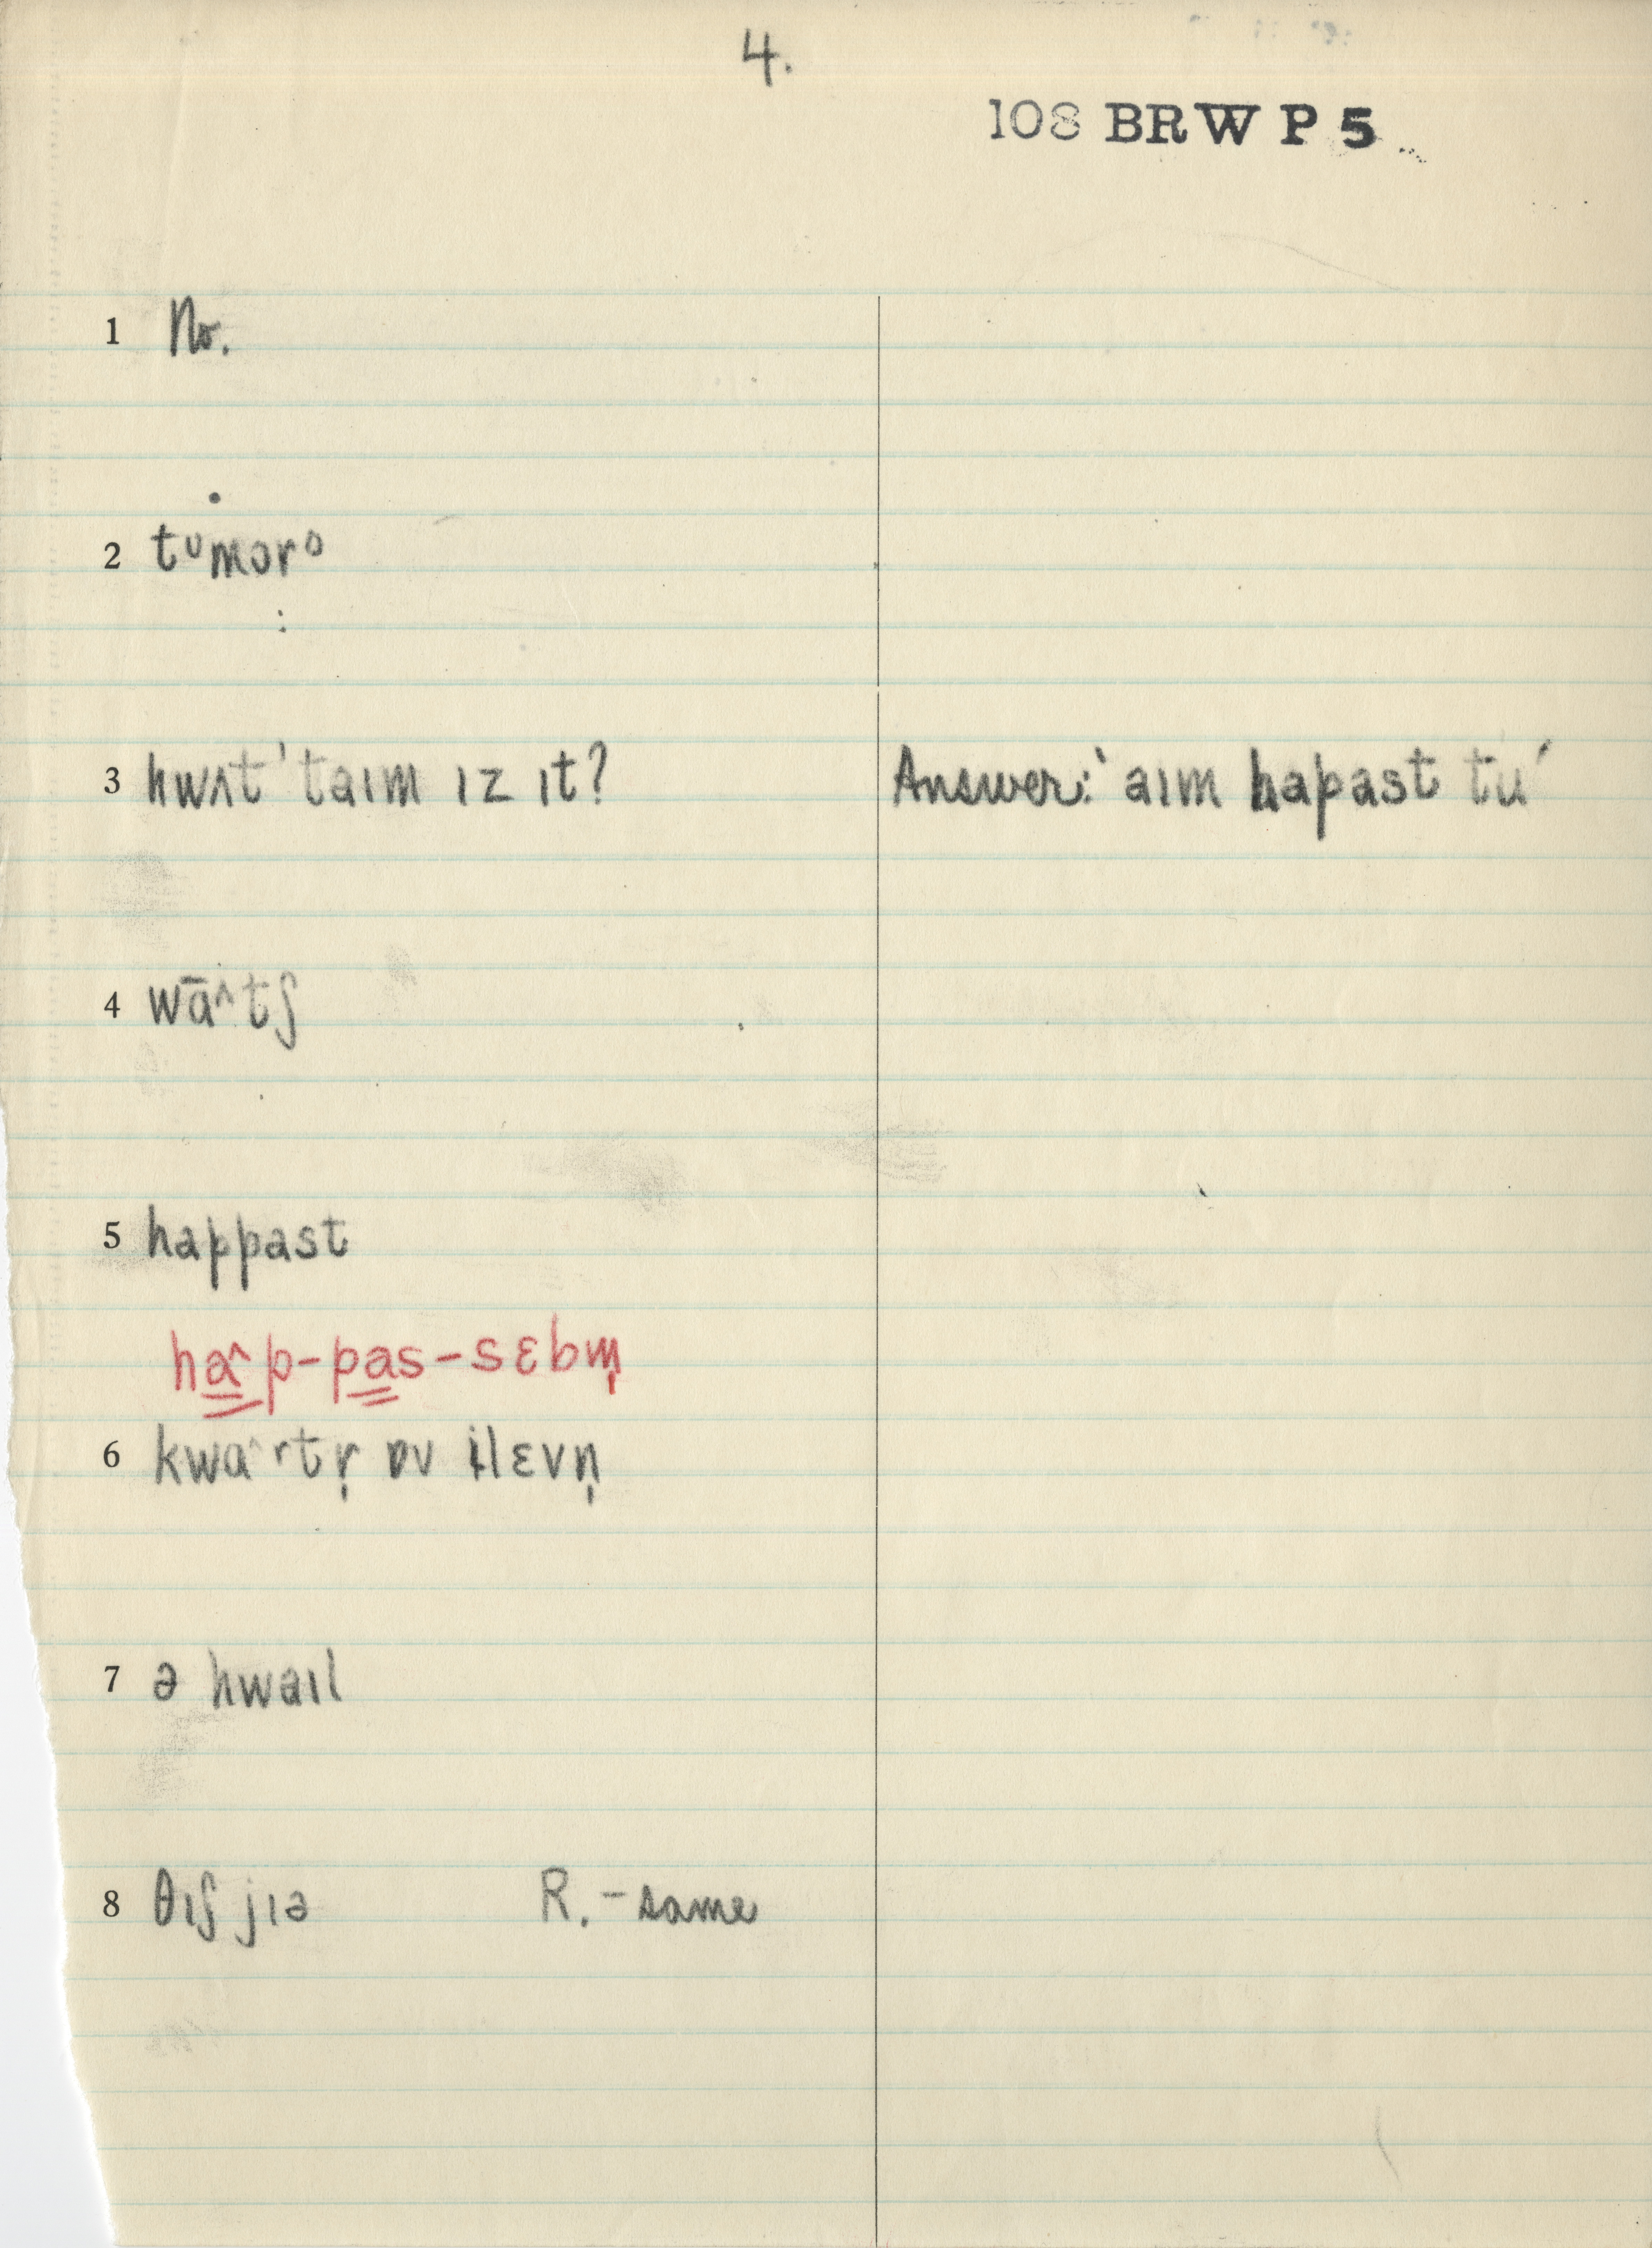 4.
108 BRW P 5
1 No.
2 tᵘmɔrᵒ
3 hwʌt ˈtaɪm ɪz ɪt? Answer: ˈaɪm hapast tu´
4 wāˆtʃ
5 happast
haˆp-pas-sɛbm̩
6 kwaˆrtr̩ ɒv ilɛvn̩
7 ə hwaɪl
8 θɪʃ jɪə R. - same